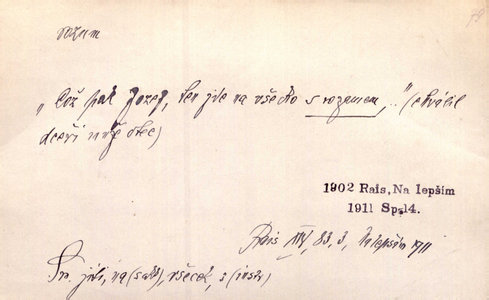 rozum
„Což pak Jozef, ten jde na všecko s rozumem,.." (chválil
dceři muže otec)
1902 Rais, Na lepším
1911 Sp.14.
Rais XIV, 83, 3, Na lepším 1911
Sr. jíti, na (s akk), všecek, s (instr)